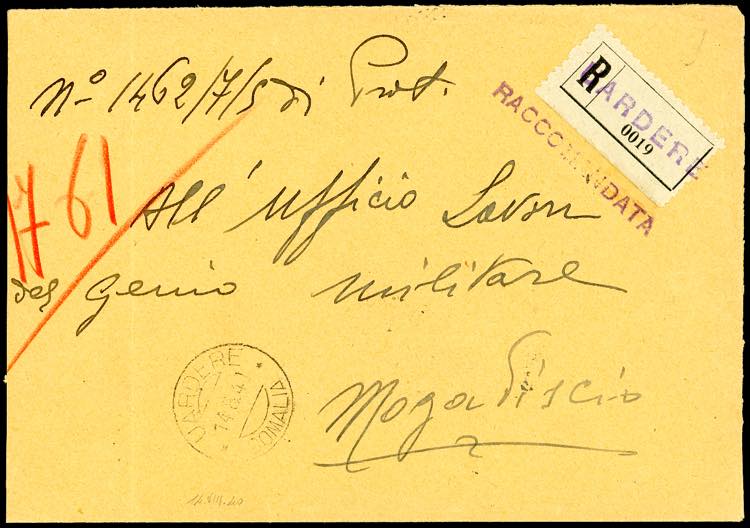 Nº 1462/7/5 di Prot.
R
BARDERE
0019
RACCOMANDATA
1761
All' Ufficio Lavori
del Genio militare
Mogadiscio
UARDERE
SOMALIA
14.8.4
14.VIII.40